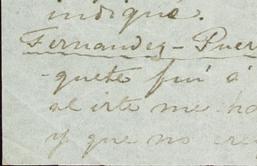 indiqué.
Fernandez - Puer
-quete fui á
al irte me ha
y que no cre